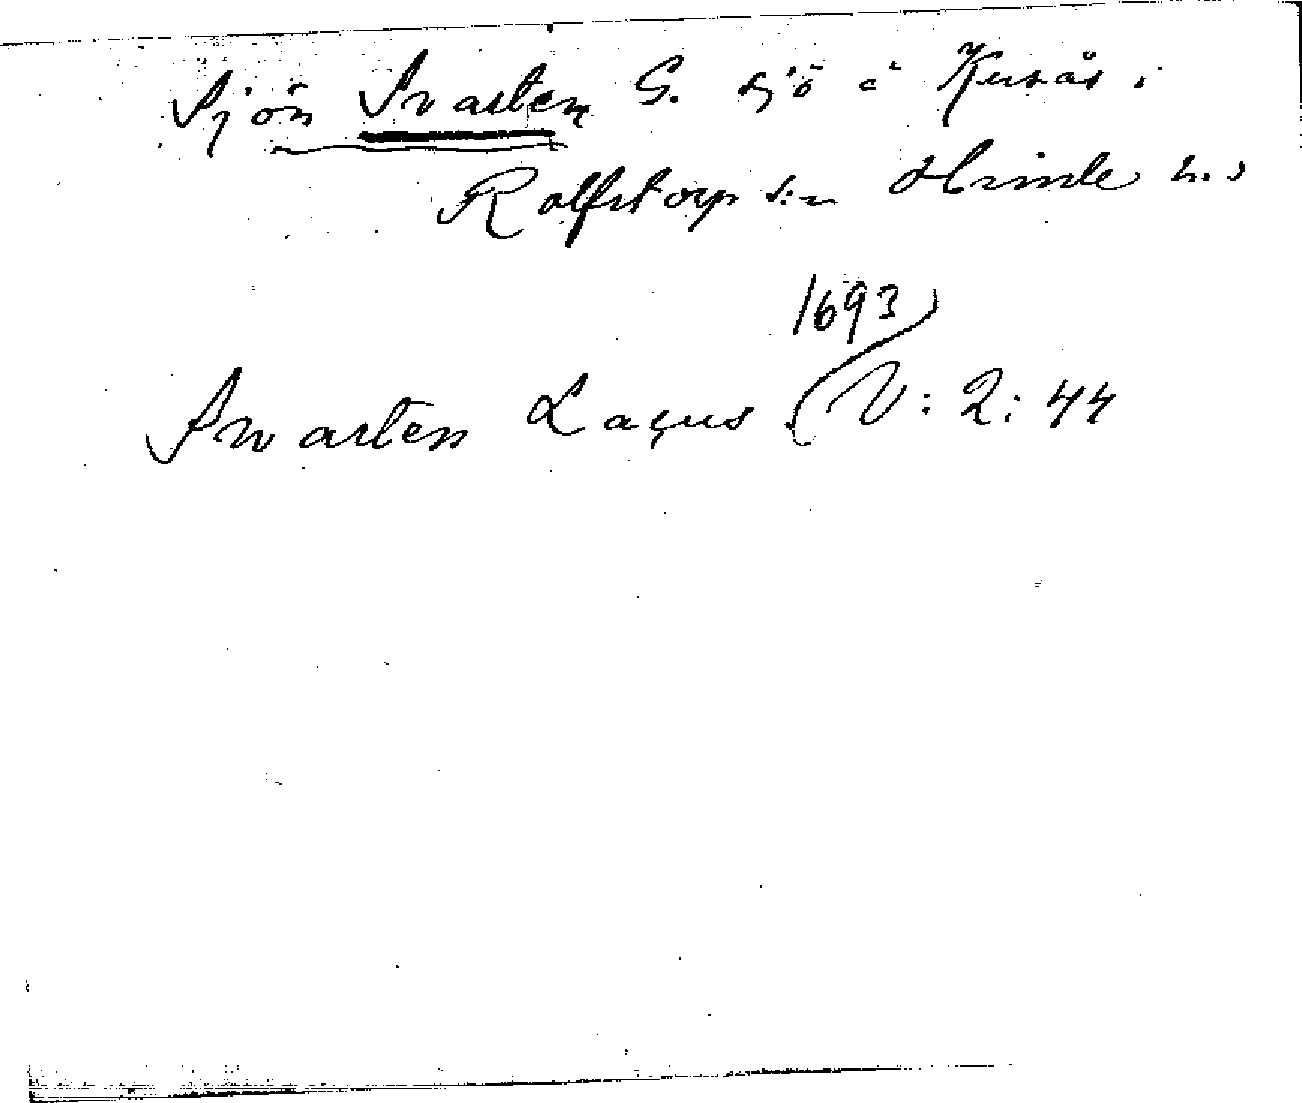 Sjön Svarten G. sjö å Kusås i
Rolfstorp s:n Himle h.
1693
Swarten Lacus V: 2: 44